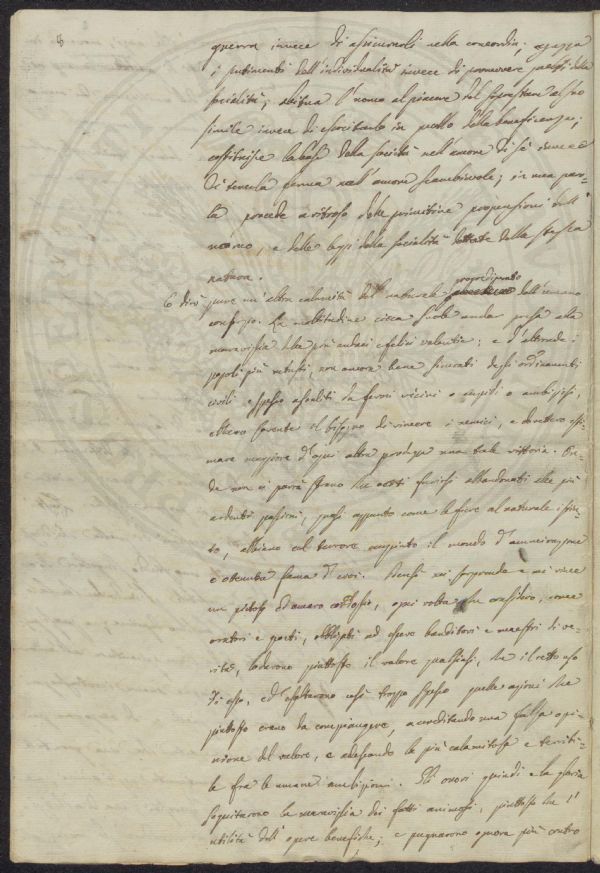 guerra invece di assicurarli nella concordia;
i sentimenti dell'individualità invece di promuovere quelli della
socialità; abitua l'uomo al piacere del soprastare al suo
simile invece di esercitarlo in quello della beneficenza;
costituisce la base della società nell'amore di sè invece
di tenerla ferma nell'amore scambievole; in una paro-
la procede a ritroso delle primitive propensioni dell'
uomo, e delle leggi della socialità dettate dalla stessa
natura.
E dirò pure un'altra calamità del naturale dell'umano
La moltitudine cieca suole andar presa alla
maraviglia delle più audaci e felici valentie; e d'altronde i
popoli più vetusti, non ancora bene sicurati degli ordinamenti
civili e spesso assaliti da feroci vicini o cupidi o ambiziosi,
ebbero sovente il bisogno di vincere i nemici, e dovettero esti-
mare maggiore d'ogni altra prodezza una tale vittoria. On-
de non ci parrà strano che certi furiosi abbandonati alle più
ardenti passioni, quasi appunto come le fiere al naturale istin-
to, abbiano col terrore riempiuto il mondo d'ammirazione
e ottenuta fama d'eroi. Bensì mi sorprende e mi vince
un pietoso ed amaro cordoglio, ogni volta che considero, come
oratori e poeti, obbligati ad essere banditori e maestri di ve-
rità, lodarono piuttosto il valore qualsiasi, che il retto uso
di esso, ed esaltarono così troppo spesso quelle azioni che
piuttosto erano da compiangere, accreditando una falsa opi-
nione del valore, e adescando la più calamitosa e terribi-
le fra le umane ambizioni. Gli onori quindi e la gloria
seguitarono la maraviglia dei fatti animosi, piuttosto che l'
utilità dell'opere benefiche; e pugnarono ancora più contro